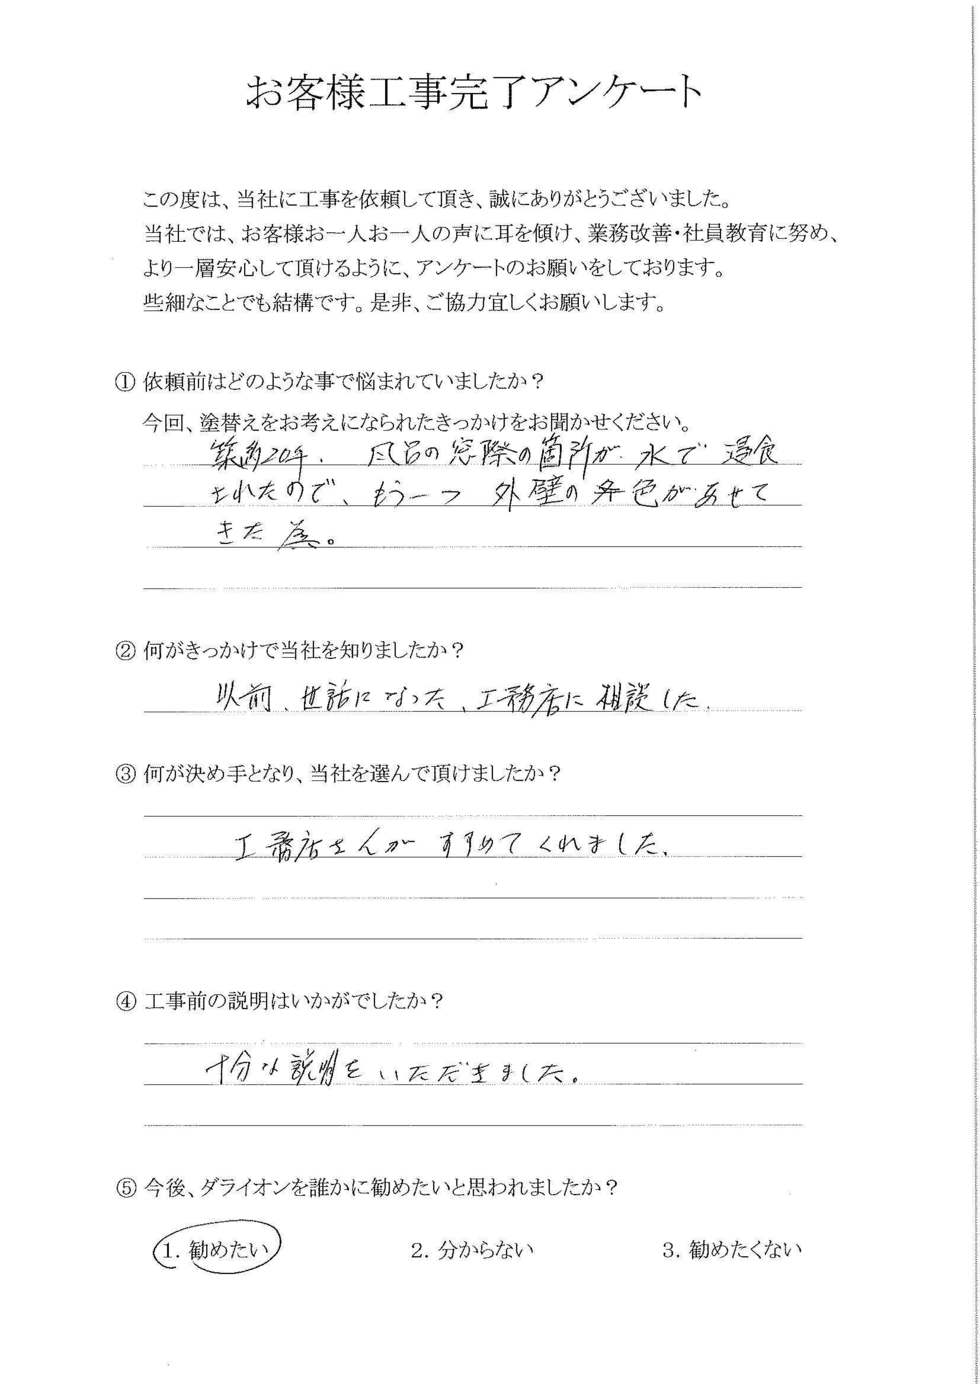 お客様工事完了アンケート
この度は、当社に工事を依頼して頂き、誠にありがとうございました。
当社では、お客様お一人お一人の声に耳を傾け、業務改善・社員教育に努め、
より一層安心して頂けるように、アンケートのお願いをしております。
些細なことでも結構です。是非、ご協力宜しくお願いします。
① 依頼前はどのような事で悩まれていましたか？
今回、塗替えをお考えになられたきっかけをお聞かせください。
築約20年、風呂の窓際の箇所が水で浸食
されたので、もう一つ 外壁の 色があせて
きた為。
② 何がきっかけで当社を知りましたか？
以前、世話になった、工務店に相談した.
③ 何が決め手となり、当社を選んで頂けましたか？
工務店さんがすすめてくれました.
④ 工事前の説明はいかがでしたか？
十分な説明をいただきました。
⑤ 今後、ダライオンを誰かに勧めたいと思われましたか？
1. 勧めたい 2. 分からない 3. 勧めたくない